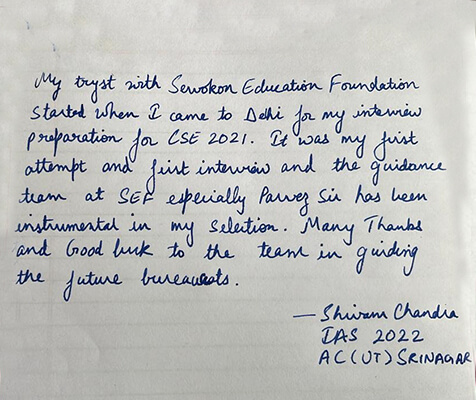 My tryst with Sewokon Education Foundation
started when I came to Delhi for my interview
preparation for CSE 2021. It was my first
attempt and first interview and the guidance
team at SEF especially Parvez Sir has been
instrumental in my selection. Many Thanks
and Good luck to the team in guiding
the future bureaucrats.
— Shivam Chandra
IAS 2022
AC (UT) SRINAGAR